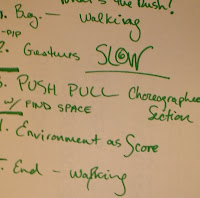 What's the Rush!
1. Beg. — Walking
-PIP
2. Gestures SLOW
3. PUSH PULL Choreographed
w/ FIND SPACE Section
4. Environment as Score
5. End - Walking